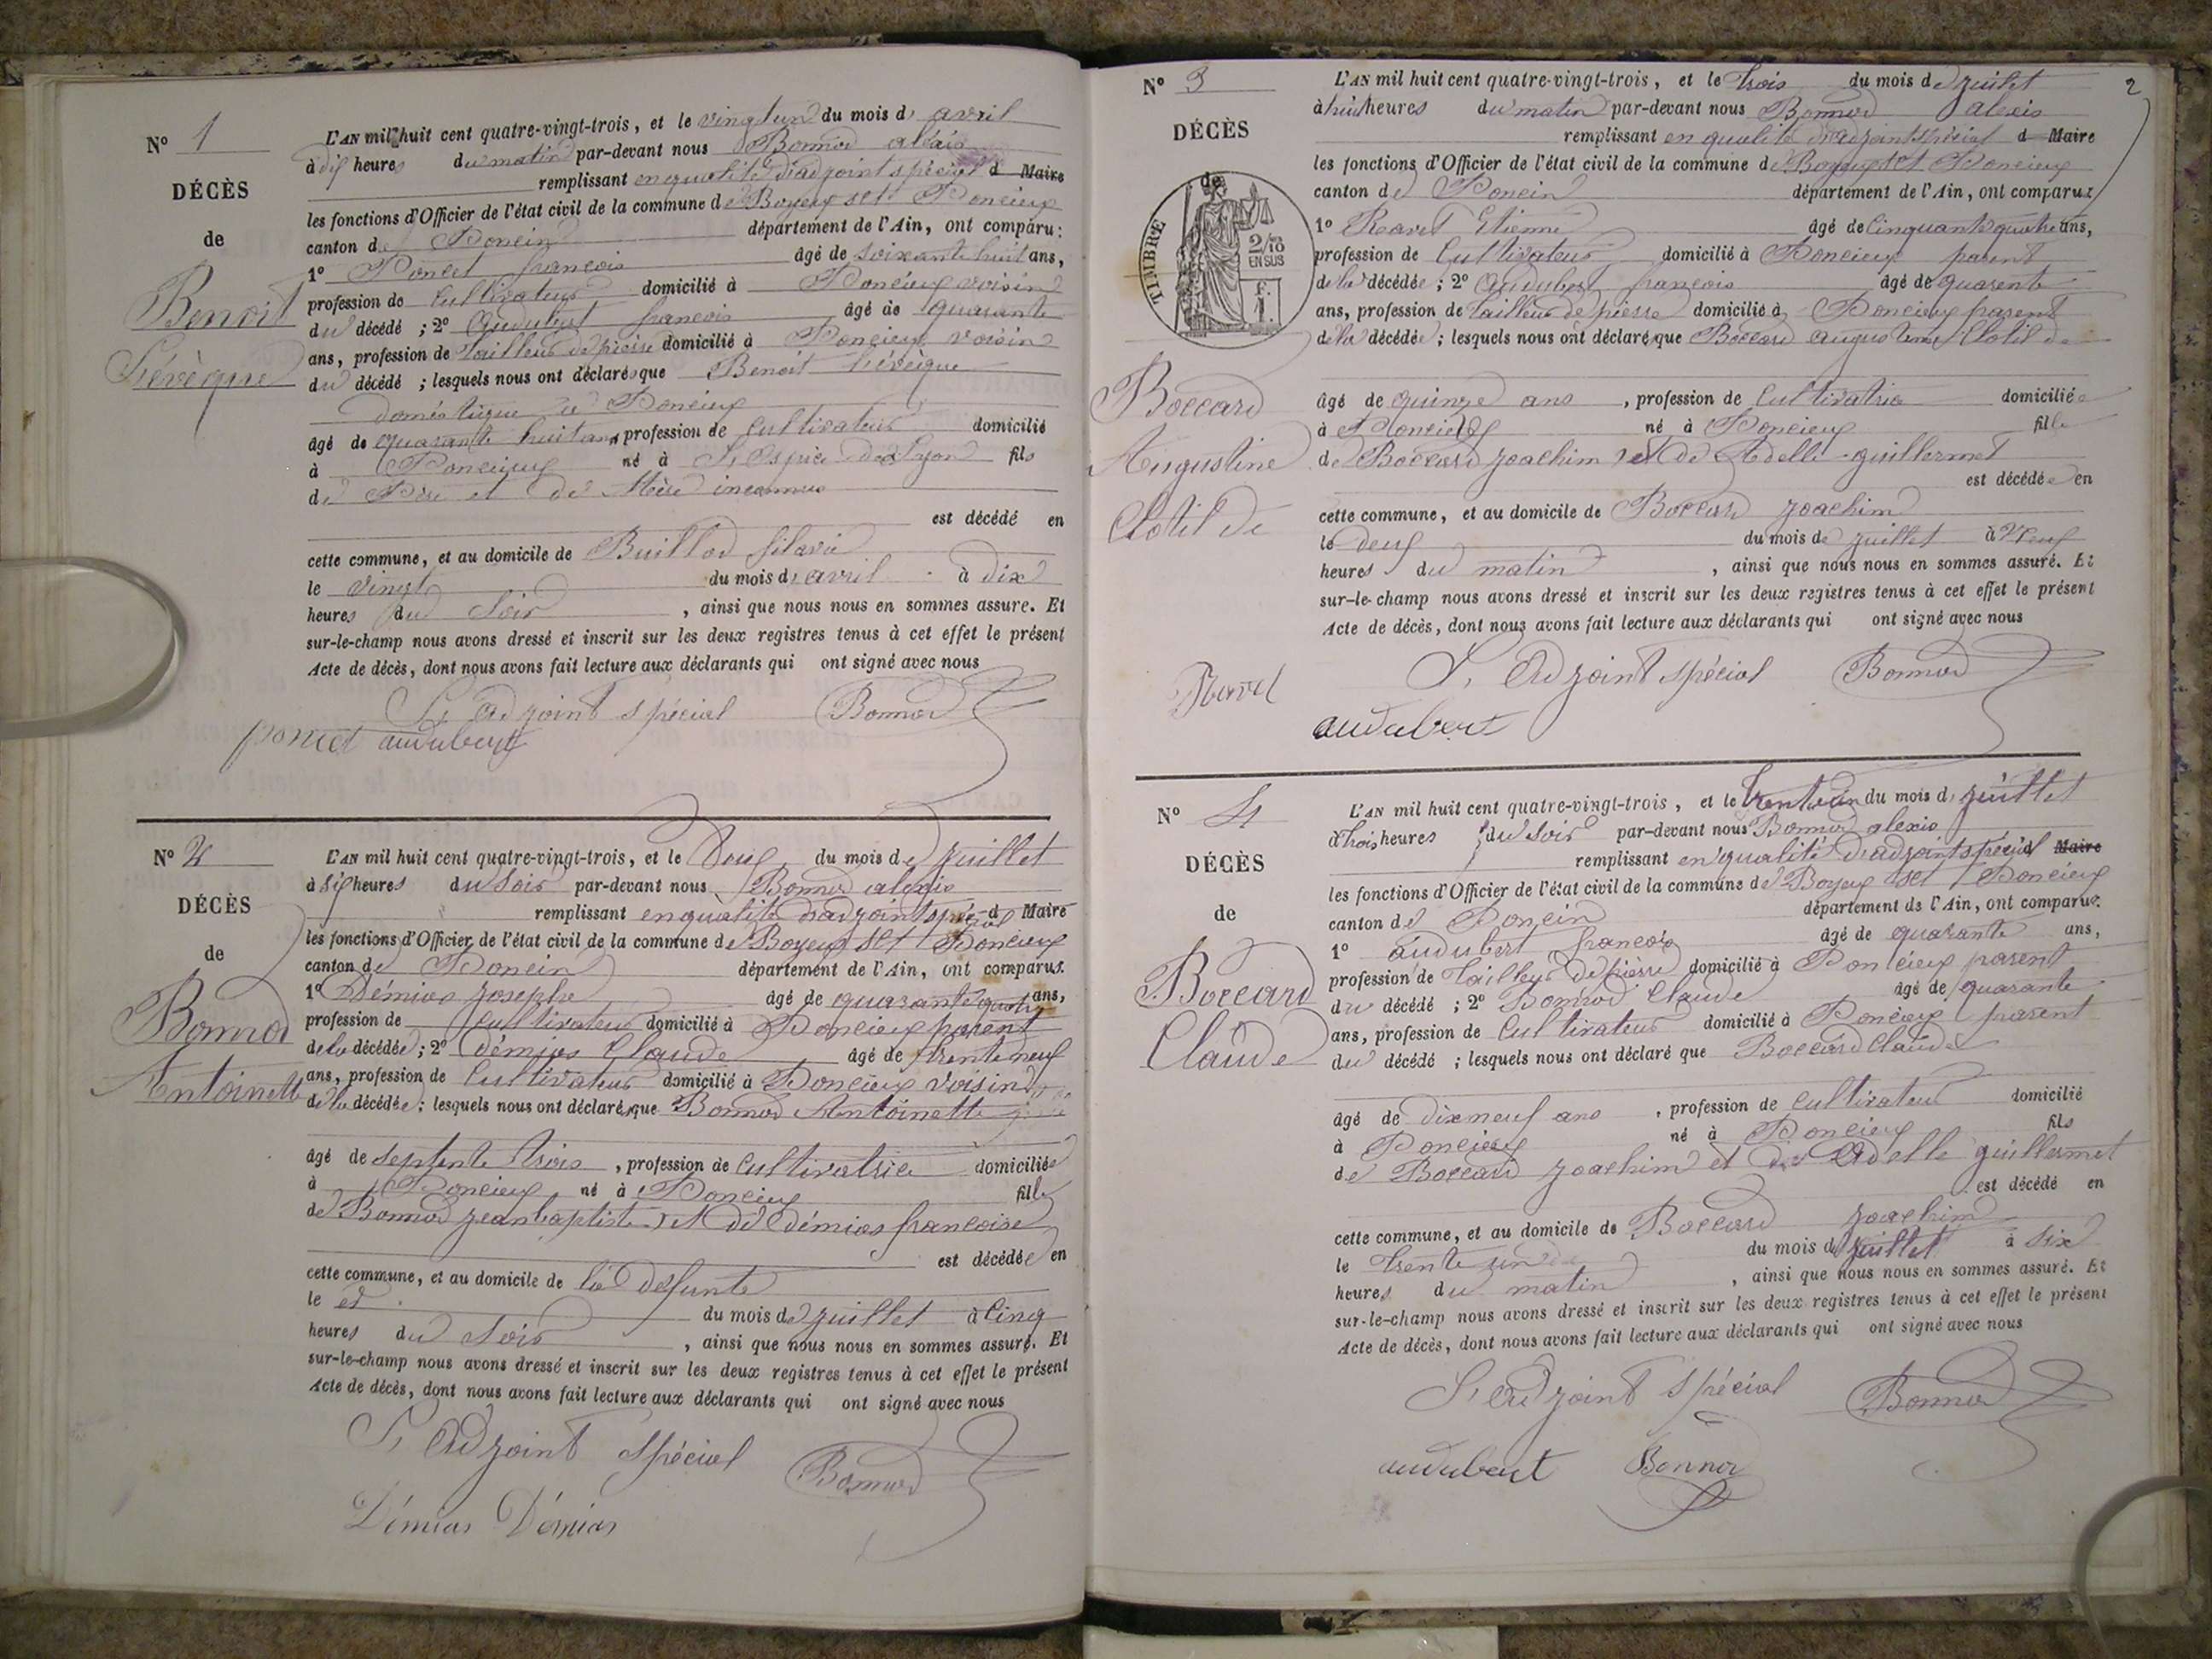 N° 1
DÉCÈS
de
Benoit
Lévèque
L'AN mil huit cent quatre-vingt-trois, et le vingt un du mois d' avril
à dix heures du matin par-devant nous Bonnod alexis
remplissant en qualité d'adjoint spécial d Maire
les fonctions d'Officier de l'état civil de la commune de Boyeux st Poncieux
canton de Poncin département de l'Ain, ont comparu :
1° Poncet francois âgé de soixante huit ans,
profession de Cultivateur domicilié à Poncieux voisin
du décédé ; 2° Audubert francois âgé de quarante
ans, profession de tailleur de pierre domicilié à Poncieux voisin
du décédé ; lesquels nous ont déclaré que Benoit Lévèque
doméstique à Poncieux
âgé de quarante huit ans, profession de Cultivateur domicilié
à Poncieux né à L'Ospice de Lyon fils
de Père et de Mère inconnus
est décédé en
cette commune, et au domicile de Buillod hilarie
le vingt du mois d'avril à dix
heures du soir, ainsi que nous nous en sommes assuré. Et
sur-le-champ nous avons dressé et inscrit sur les deux registres tenus à cet effet le présent
Acte de décès, dont nous avons fait lecture aux déclarants qui ont signé avec nous
L'Adjoint spécial Bonnod
poncet audubert
N° 2
DÉCÈS
de
Bonnod
Antoinette
L'AN mil huit cent quatre-vingt-trois, et le Deux du mois de juillet
à six heures du soir par-devant nous Bonnod alexis
remplissant en qualité d'adjoint spécial d Maire
les fonctions d'Officier de l'état civil de la commune de Boyeux st Poncieux
canton de Poncin département de l'Ain, ont comparus.
1° Démias josephe âgé de quarante quatre ans,
profession de Cultivateur domicilié à Poncieux parent
de la décédée ; 2° démias Claude âgé de trente neuf
ans, profession de Cultivateur domicilié à Poncieux voisin
de la décédée ; lesquels nous ont déclaré que Bonnod Antoinette
âgé de septente trois, profession de Cultivatrice domiciliée
à Poncieux né à Poncieux fille
de Bonnod jeanbaptiste et de démias francoise
est décédée en
cette commune, et au domicile de la defunte
le du mois de juillet à cinq
heures du soir, ainsi que nous nous en sommes assuré. Et
sur-le-champ nous avons dressé et inscrit sur les deux registres tenus à cet effet le présent
Acte de décès, dont nous avons fait lecture aux déclarants qui ont signé avec nous
L'Adjoint spécial Bonnod
Démias Démias
2
N° 3
DÉCÈS
de
TIMBRE
2/10
EN SUS
Boccard
Augustine
Clotilde
L'AN mil huit cent quatre-vingt-trois, et le trois du mois de juillet
à huit heures du matin par-devant nous Bonnod alexis
remplissant en qualité d'adjoint spécial d Maire
les fonctions d'Officier de l'état civil de la commune de Boyeux st Poncieux
canton de Poncin département de l'Ain, ont comparus
1° Ravet Etienne âgé de Cinquante quatre ans,
profession de Cultivateur domicilié à Poncieux parent
de la décédée ; 2° Audubert francois âgé de quarente
ans, profession de tailleur de pierre domicilié à Poncieux parent
de la décédée ; lesquels nous ont déclaré que Boccard augustine Clotilde
âgé de quinze ans, profession de Cultivatrice domiciliée
à Poncieux né à Poncieux fille
de Boccard joachim et de Adelle guillermet
est décédée en
cette commune, et au domicile de Boccard joachim
le deux du mois de juillet à neuf
heures du matin, ainsi que nous nous en sommes assuré. Et
sur-le-champ nous avons dressé et inscrit sur les deux registres tenus à cet effet le présent
Acte de décès, dont nous avons fait lecture aux déclarants qui ont signé avec nous
L'Adjoint spécial Bonnod
Ravet
audubert
N° 4
DÉCÈS
de
Boccard
Claude
L'AN mil huit cent quatre-vingt-trois, et le trente un du mois de juillet
à trois heures du soir par-devant nous Bonnod alexis
remplissant en qualité d'adjoint spécial Maire
les fonctions d'Officier de l'état civil de la commune de Boyeux st Poncieux
canton de Poncin département de l'Ain, ont comparus.
1° audubert francois âgé de quarante ans,
profession de tailleur de pierre domicilié à Poncieux parent
du décédé ; 2° Bonnod Claude âgé de quarante
ans, profession de Cultivateur domicilié à Poncieux parent
du décédé ; lesquels nous ont déclaré que Boccard Claude
âgé de dix neuf ans, profession de cultivateur domicilié
à Poncieux né à Poncieux fils
de Boccard joachim et de Adelle guillermet
est décédé en
cette commune, et au domicile de Boccard joachim
le trente un du mois de juillet à six
heures du matin, ainsi que nous nous en sommes assuré. Et
sur-le-champ nous avons dressé et inscrit sur les deux registres tenus à cet effet le présent
Acte de décès, dont nous avons fait lecture aux déclarants qui ont signé avec nous
L'Adjoint spécial Bonnod
audubert Bonnod